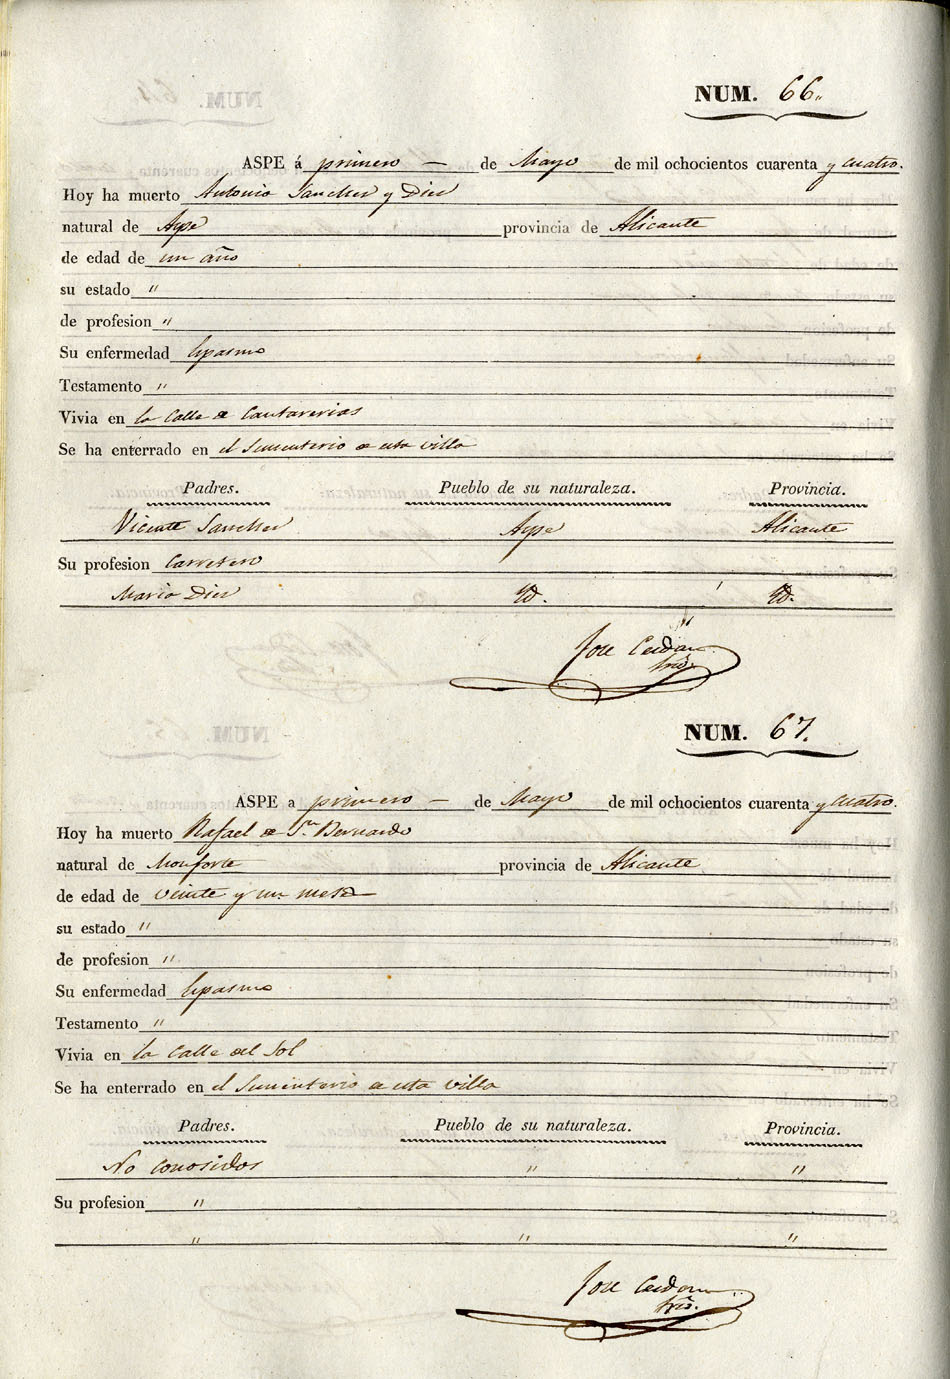 NUM. 66.
ASPE á primero — de Mayo de mil ochocientos cuarenta y cuatro.
Hoy ha muerto Antonio Sanches y Dies
natural de Aspe provincia de Alicante
de edad de un año
su estado "
de profesion "
Su enfermedad Espasmo
Testamento "
Vivia en la Calle de Cantarerias
Se ha enterrado en el Sementerio de esta villa
Padres. Pueblo de su naturaleza. Provincia.
Vicente Sanches Aspe Alicante
Su profesion Carretero
Maria Dies Yd. Yd.
Jose Cerdan
Srio.
NUM. 67.
ASPE a primero — de Mayo de mil ochocientos cuarenta y cuatro.
Hoy ha muerto Rafael de Sn. Bernardo
natural de Monforte provincia de Alicante
de edad de veinte y un meses
su estado "
de profesion "
Su enfermedad Espasmo
Testamento "
Vivia en la Calle del Sol
Se ha enterrado en el Sementerio de esta villa
Padres. Pueblo de su naturaleza. Provincia.
No conosidos " "
Su profesion "
" " "
Jose Cerdan
Srio.